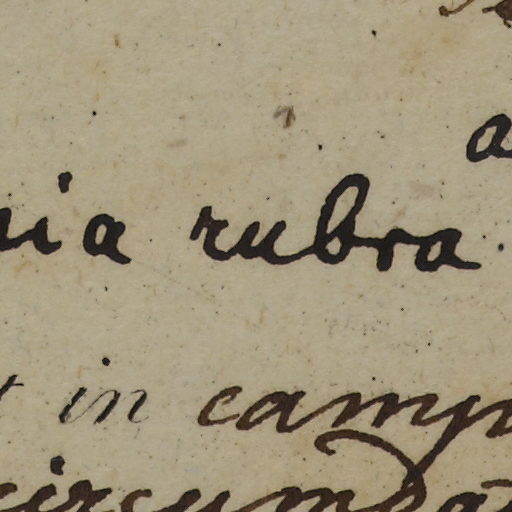 a
nia rubra.
t in camp
circumda